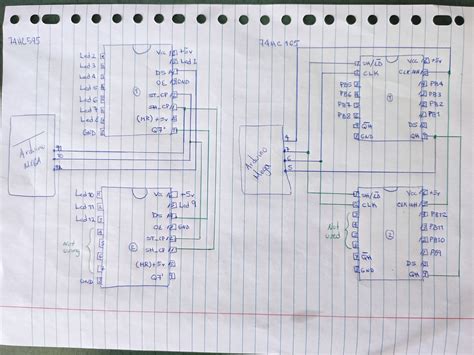 74HC595
74HC165
Led 2
Led 3
Led 4
Led 5
Led 6
Led 7
Led 8
GND
Vcc +5v
Led 1
DS
OE GND
ST_CP
SH_CP
(MR) +5v
Q7'
1
Arduino
MEGA
Led 10
Led 11
Led 12
Not
using
GND
Vcc +5v
Led 9
DS
OE GND
ST_CP
SH_CP
(MR) +5v
Q7'
2
SH/LD
CLK
PB5
PB6
PB7
PB8
QH
GND
Vcc +5v
CLK INH
PB4
PB3
PB2
PB1
DS
QH
1
4
7
6
5
Arduino
Mega
SH/LD
CLK
Not
used
QH
GND
Vcc +5v
CLK INH
PB12
PB11
PB10
PB9
DS
QH
2